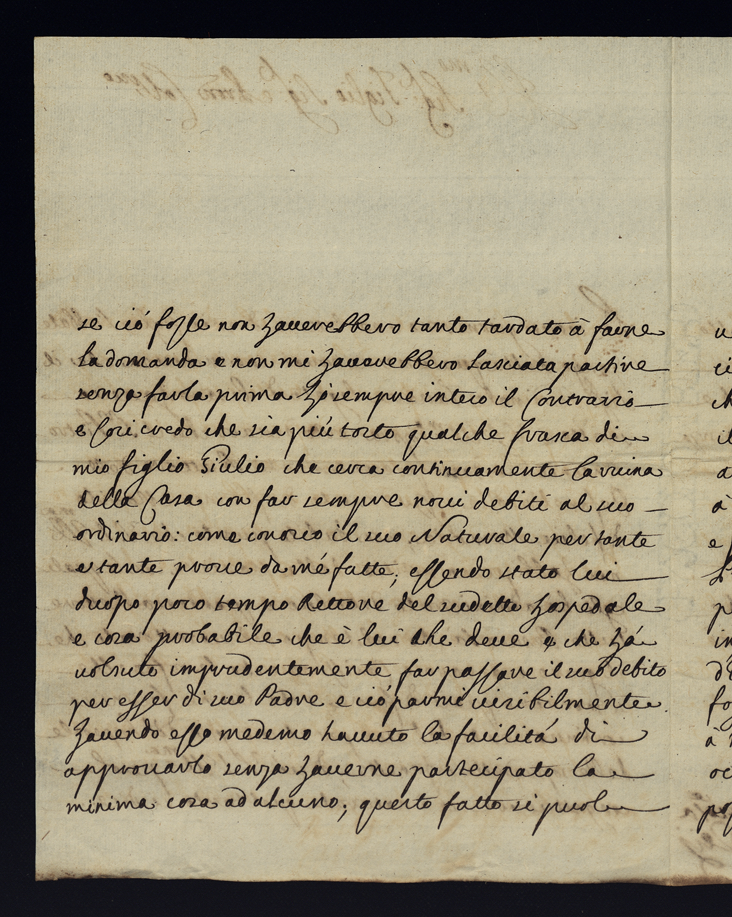 se ció fosse non haverebbero tanto tardato à farne
la domanda e non mi haverebbero lasciata partire
senza farla prima hó sempre inteso il Contrario
e Cosi credo che sia piú tosto qualche frasca di
mio figlio Giulio che cerca continuamente la ruina
della Casa con far sempre novi debiti al suo
ordinario: come conosco il suo Naturale per tante
e tante prove da mé fatte, essendo stato lui
duopo poco tempo Rettore del sudetto hospedale
e cosa probabile che è lui che deve e che há
volsuto imprudentemente far passare il suo debito
per esser di suo Padre e ció parmi visibilmente
havendo esso medemo havuto la facilitá di
approvarlo senza haverne partecipato la
minima cosa ad alcuno; questo fatto si puol